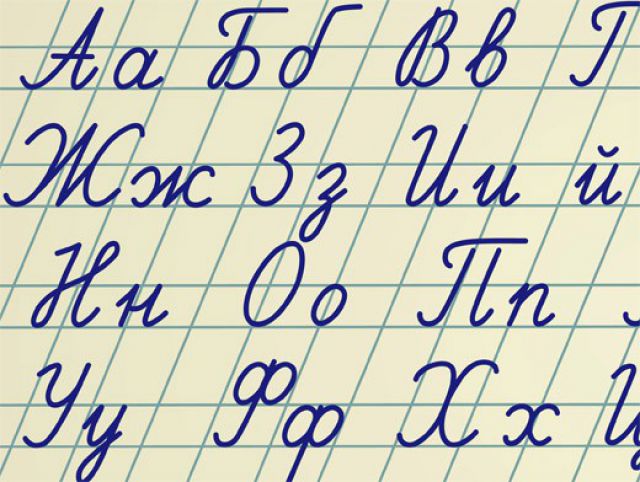 Аа Бб Вв Г
Жж Зз Ии й
Нн Оо Пп
Уу Фф Хх Ц